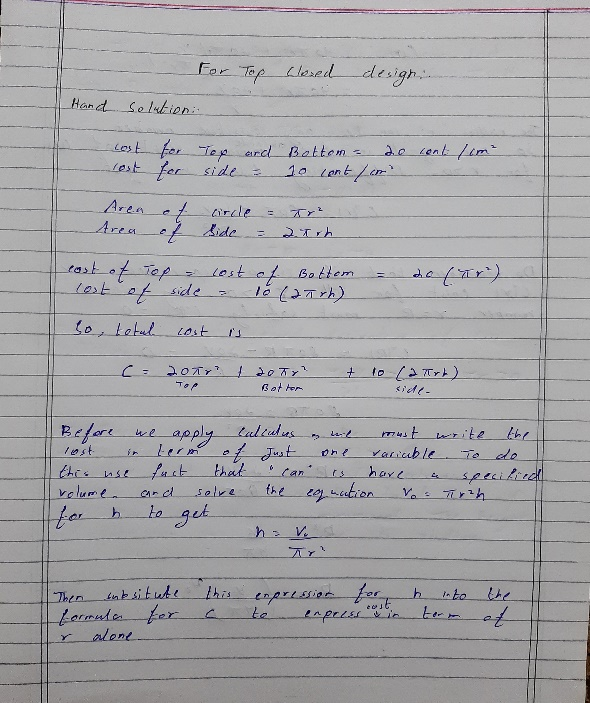 For Top Closed design:
Hand Solution:
cost for Top and Bottom = 20 cent /cm²
cost for side = 10 cent/cm²
Area of circle = πr²
Area of Side = 2πrh
cost of Top = cost of Bottom = 20 (πr²)
cost of side = 10 (2πrh)
So, total cost is
C = 20πr² + 20πr² + 10 (2πrh)
Top Bottom side
Before we apply calculus, we must write the
cost in term of Just one variable. To do
this use fact that "can" is have a specified
volume and solve the equation V₀ = πr²h
for h to get
h = V₀
πr²
Then subsitute this expression for h into the
formula for C to express cost in term of
r alone